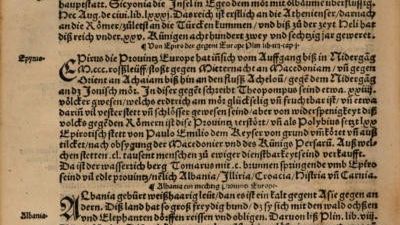 hauptstatt. Sicyonia die Insel im Egeo dem möt mit ölbäume überflüssig.
Hec Aug. de ciui. lib. xxxj. Das reich ist erstlich an die Athenienser, darnach
an die Römer, zületst an die Türcken kummen, vnd biß zů der zeyt Heli hat
diß reich vnder. xxv. Künigen achthundert zwey vnd sechzig jar geweret.
¶ Von Epiro der gegent Europe Plin lib iiij cap j
Epyrus EPirus die Prouintz Europe hat in sich vom Auffgang biß in Nidergãg
M. ccc. roßleüff stoßt gegen Mitternacht an Macedoniam, vñ gegen
Orient an Achaiam biß hin an den fluss Acheloũ, gegẽ dem Nidergãg
an dz Jonisch mör. In diser gegẽt schreibt Theopumpus seind etwa. xxiiij.
völcker gwesen, welchs erdtrich am möt glückselig vñ fruchtbar ist, vñ etwa
darũ vil vester stett vñ schlösser gewesen seind, aber von widerspenigkeyt diß
volcks gegẽ den Römern ist die Prouintz verstört, vñ als Polybius setzt lxx
Epirotisch stett von Paulo Emilio dem Keyser von grund vñ kötet vñ auß
tilcket, nach obsygung der Macedonier vnd des Künigs Persarũ. Auß welchen
stetten. cl. tausent menschen zũ ewiger dienstbarkeyt seind verkaufft.
Da ist der wasserich berg Tomarus mit. c. brunnen springende vnd Epiro
seind vil edle prouintz, nẽlich Albania, Illiria, Croacia, Histria vñ Carnia.
¶ Albania ein mechtig Prouintz Europe
Albania. ALbania gebürt weißhaarig leüt, dan reot ist ein kalt gegent Asie gegen andern.
Diß land hat so groß freydig hund, dz sy sich mit den wald ochsen
vnd Elephanten dörffen reissen vnd obligen. Daruon liß Plin. lib. viij.